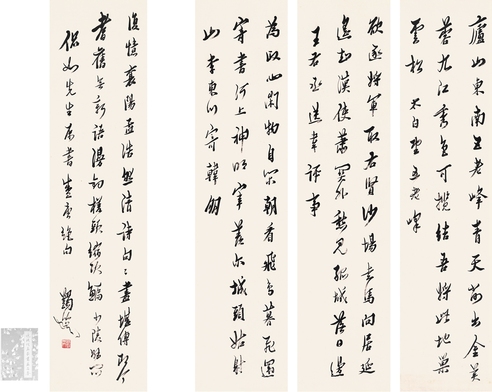 廬山東南五老峰青天削出金芙
蓉九江秀色可攬結吾將此地巢
雲松 太白望五老峰
欲逐將軍取右賢沙場走馬向居延
遙知漢使蕭關外愁見孤城落日邊
王右丞送韋評事
為政心閒物自閒朝看飛鳥暮飛還
寄書河上神明宰羨爾城頭姑射
山 李東川寄韓鵬
復憶襄陽孟浩然清詩句〻盡堪傳即今
耆舊無新語漫釣槎頭縮項鯿 少陵解悶
先生屬書